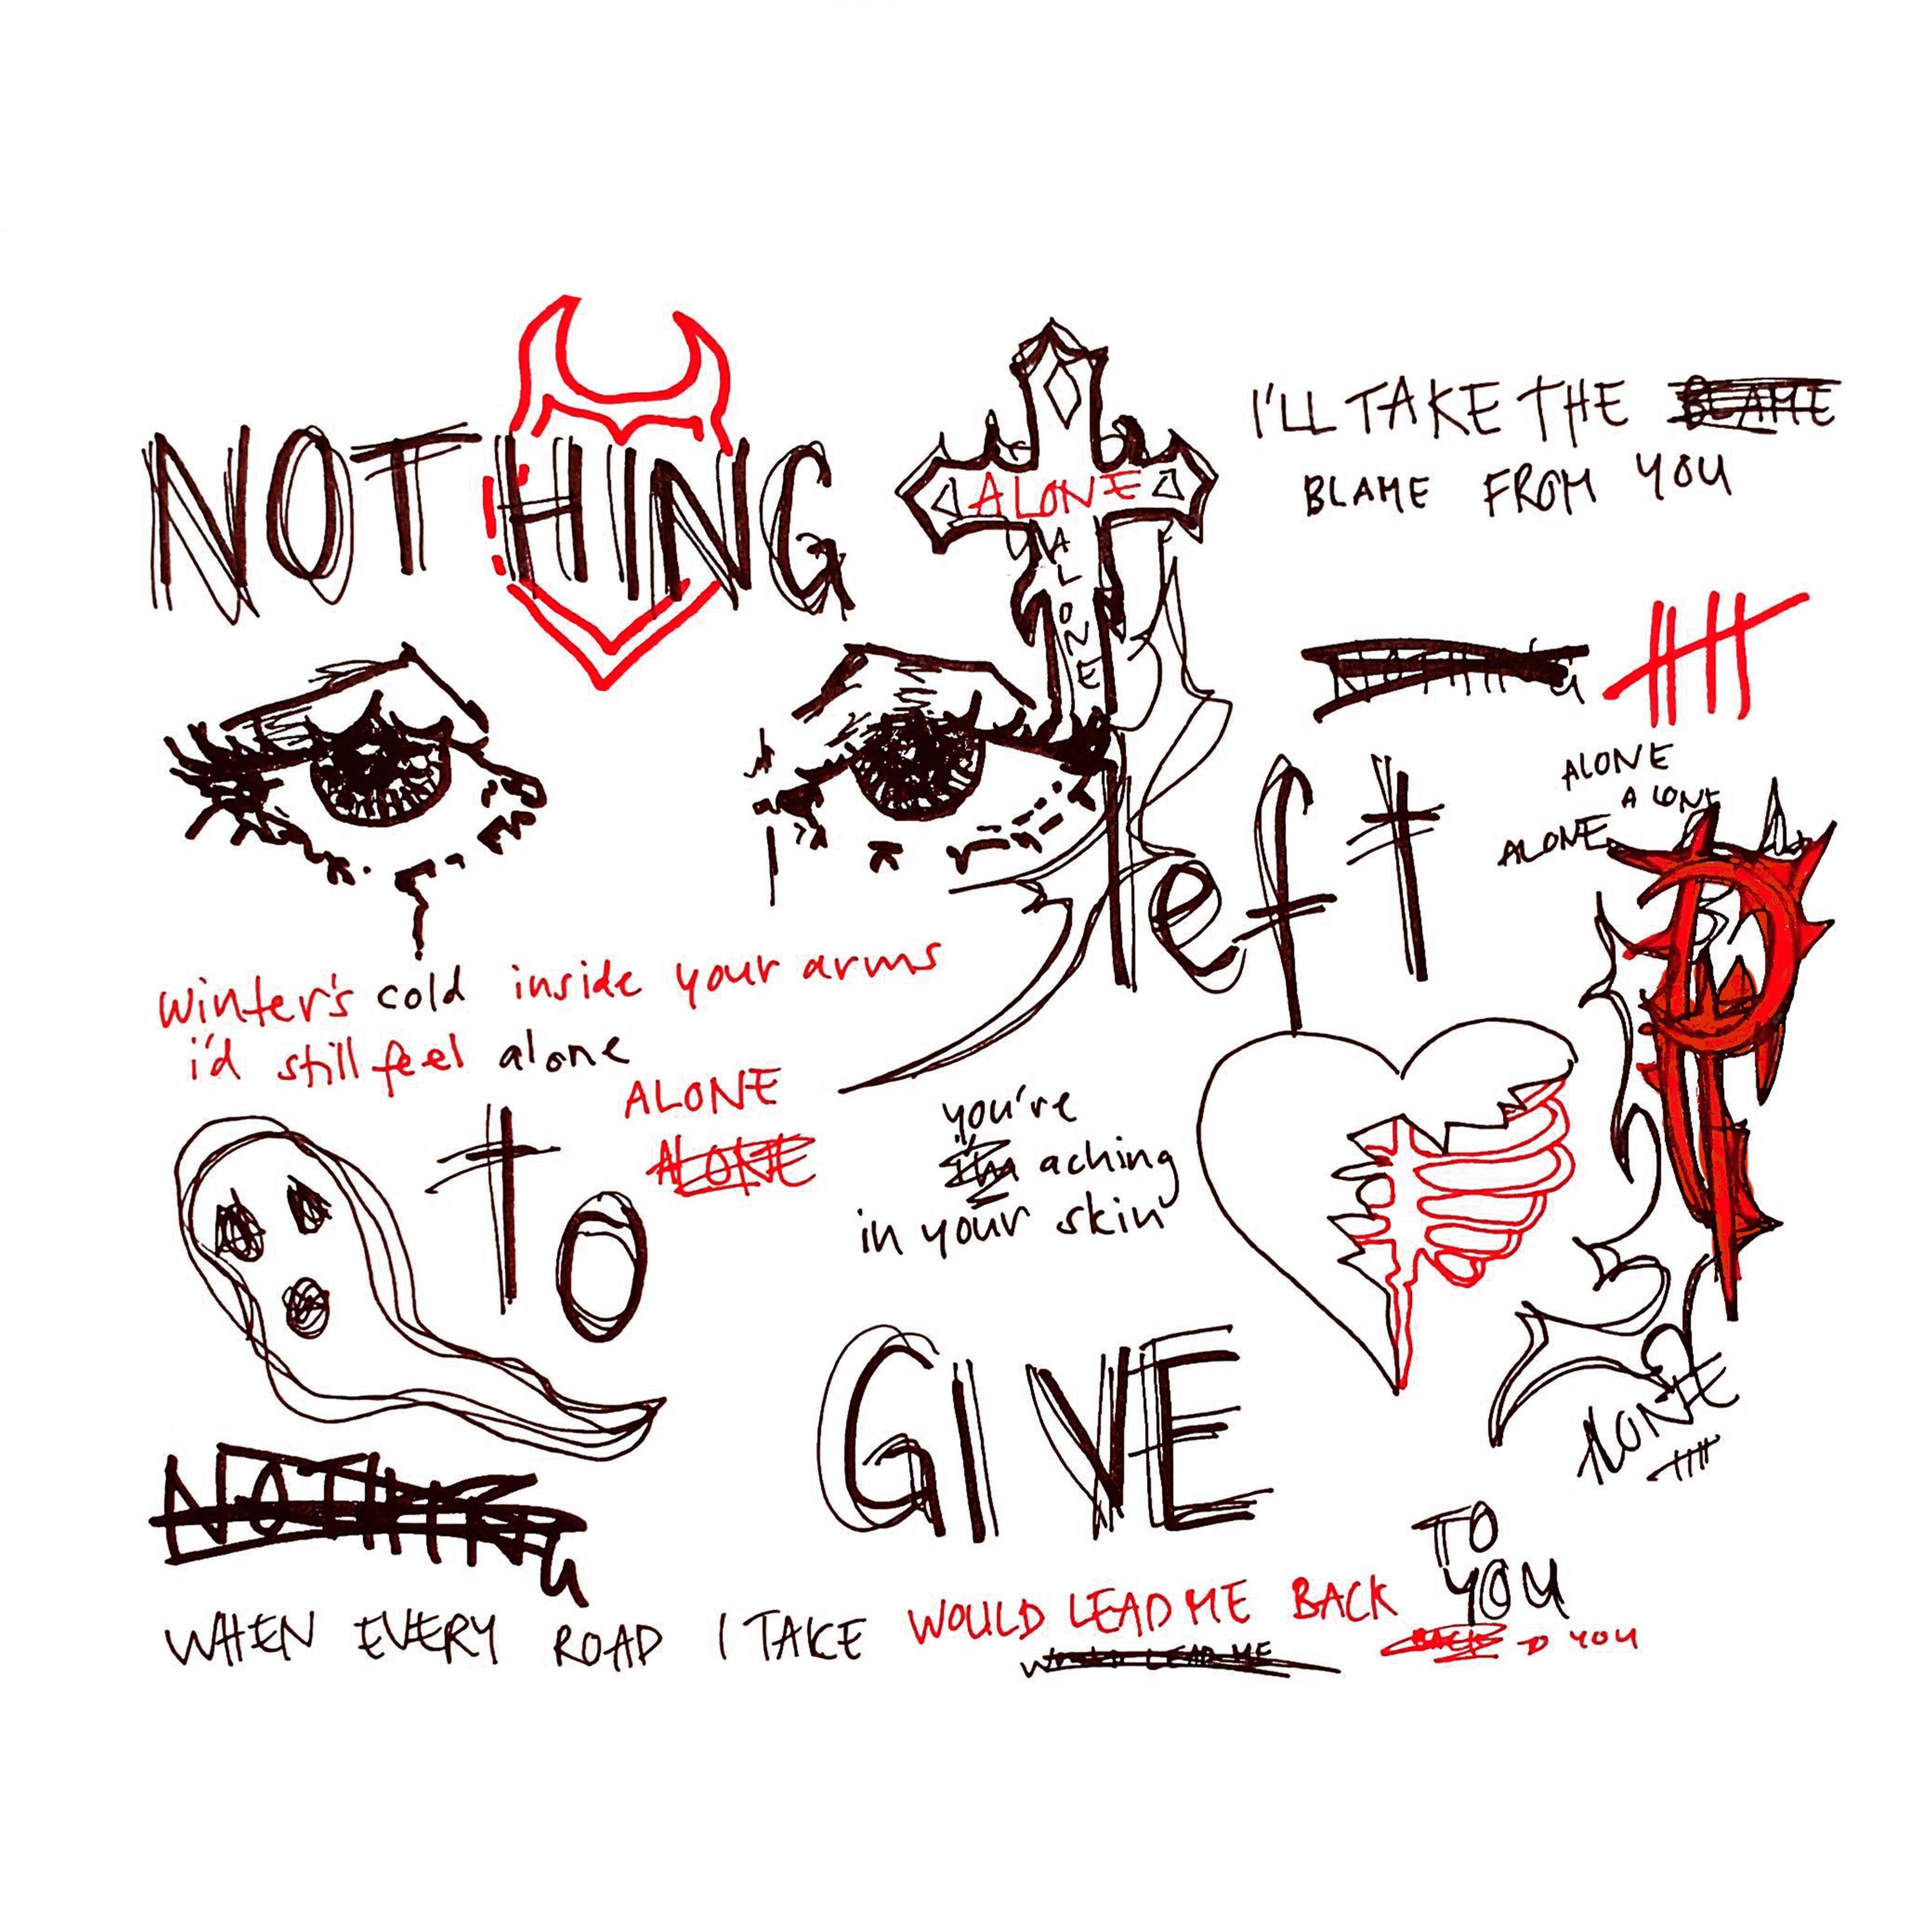 NOTHING
ALONE
ALONE
I'LL TAKE THE BLAME
BLAME FROM YOU
left
ALONE
ALONE
ALONE
winter's cold inside your arms
i'd still feel alone
ALONE
ALONE
to
you're
i'm aching
in your skin
GIVE
ALONE
NOTHING
TO
YOU
WHEN EVERY ROAD I TAKE WOULD LEAD ME BACK
WOULD LEAD ME
BACK TO YOU